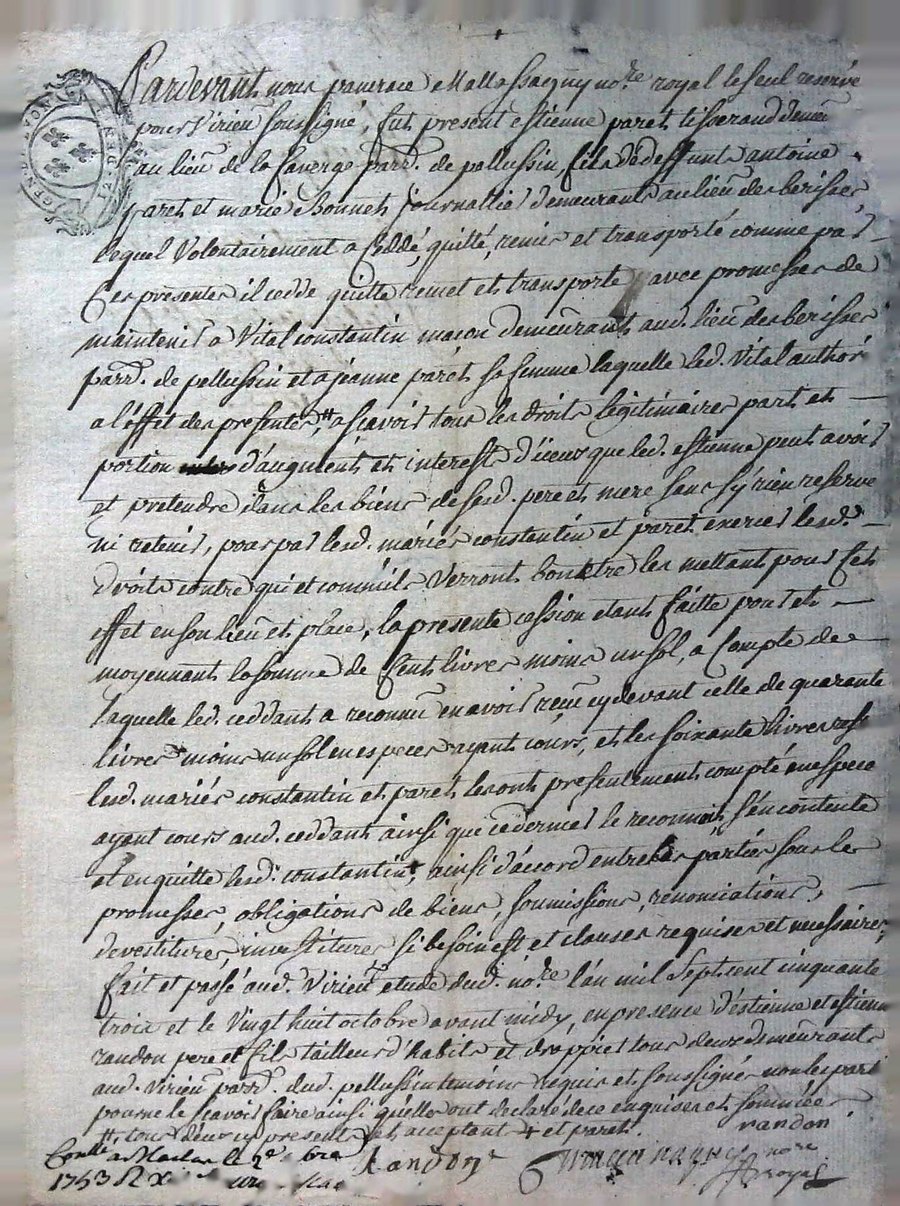 Pardevant nous pancrace Mallassagny no.re royal le seul reservé
pour Virieu soussigné, fut present estienne paret tisserand demeu
au lieu de la faverge parr.d de pellussin fils de deffunts antoine
paret et marie Bonnet journallier demeurant au lieu des berisses
lequel Volontairement a Ceddé, quitté, remis et transporté comme par
Ces presentes il cedde quitte remet et transporte avec promesses de
maintenir a Vital constantin maçon demeurant aud. lieu des berisses
parr.d de pellussin et a jeanne paret sa femme laquelle led. Vital authorise
a l'effet des presentes, # a scavoir tous les droits legitimaires part et
portion d'augment et interest d'iceux que led. estienne peut avoir
et pretendre dans les biens de sesd. pere et mere sans s'y rien reserver
ni retenir, pour par lesd. mariés constantin et paret exercer lesd.
droits contre qui et comm'ils Verront bon etre les mettant pour cet
effet en son lieu et place, la presente cession etant faitte pour et
moyennant la somme de Cent livres moins un sol, a Compte de
laquelle led. ceddant a reconnu en avoir receu cy devant celle de quarante
livres moins un sol en especes ayant cours, et les soixante livres rest
lesd. mariés constantin et paret les ont presentement compté en espece
ayant cours aud. ceddant ainsi que ce dernier le reconnoit, s'en contente
et en quitte lesd. constantin, ainsi d'accord entre les parties sous les
promesses, obligations de biens, soumissions, renonciations,
devestitures, investitures si besoin est et clauses requises et necessaires,
fait et passé aud. Virieu etude dud. no.re l'an mil sept cent cinquante
trois et le Vingt huit octobre avant midy, en presence d'estienne et estienne
randon pere et fils tailleurs d'habits et drappier tous deux demeurants
aud. Virieu parr.d dud. pellussin temoins requis et soussignés non les parties
pour ne le scavoir faire ainsi qu'elles ont declaré de ce enquises et sommées
# tous deux cy presents et acceptant + et paret. randon
Conllé a Maclas le 2e bre Randon
1753 R no.re royal